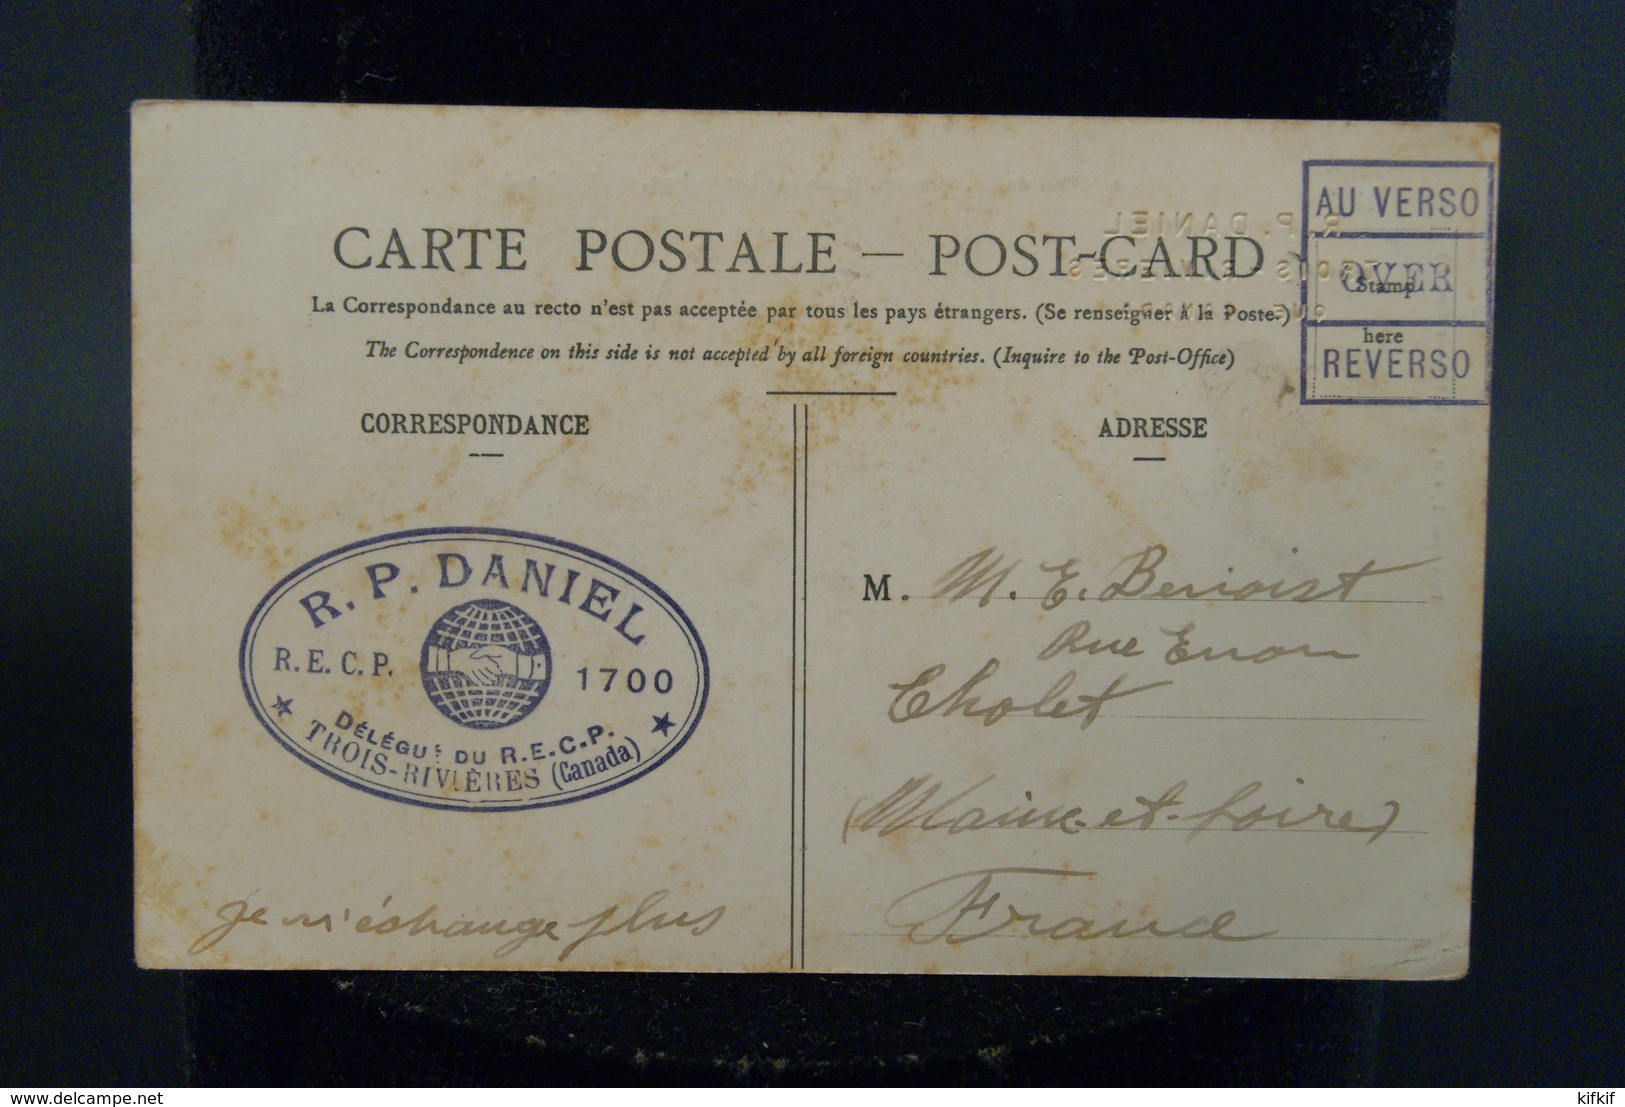 AU VERSO
R. P. DANIEL
CARTE POSTALE — POST-CARD
TROIS-RIVIERES
OVER
Stamp
La Correspondance au recto n'est pas acceptée par tous les pays étrangers. (Se renseigner à la Poste.)
here
The Correspondence on this side is not accepted by all foreign countries. (Inquire to the Post-Office)
REVERSO
CORRESPONDANCE
ADRESSE
R. P. DANIEL
R.E.C.P. 1700
DÉLÉGUÉ DU R.E.C.P.
TROIS-RIVIÈRES (Canada)
je n'échange plus
M. M. E. Benoist
Rue
Cholet
(Maine-et-Loire)
France
delcampe.net
kifkif